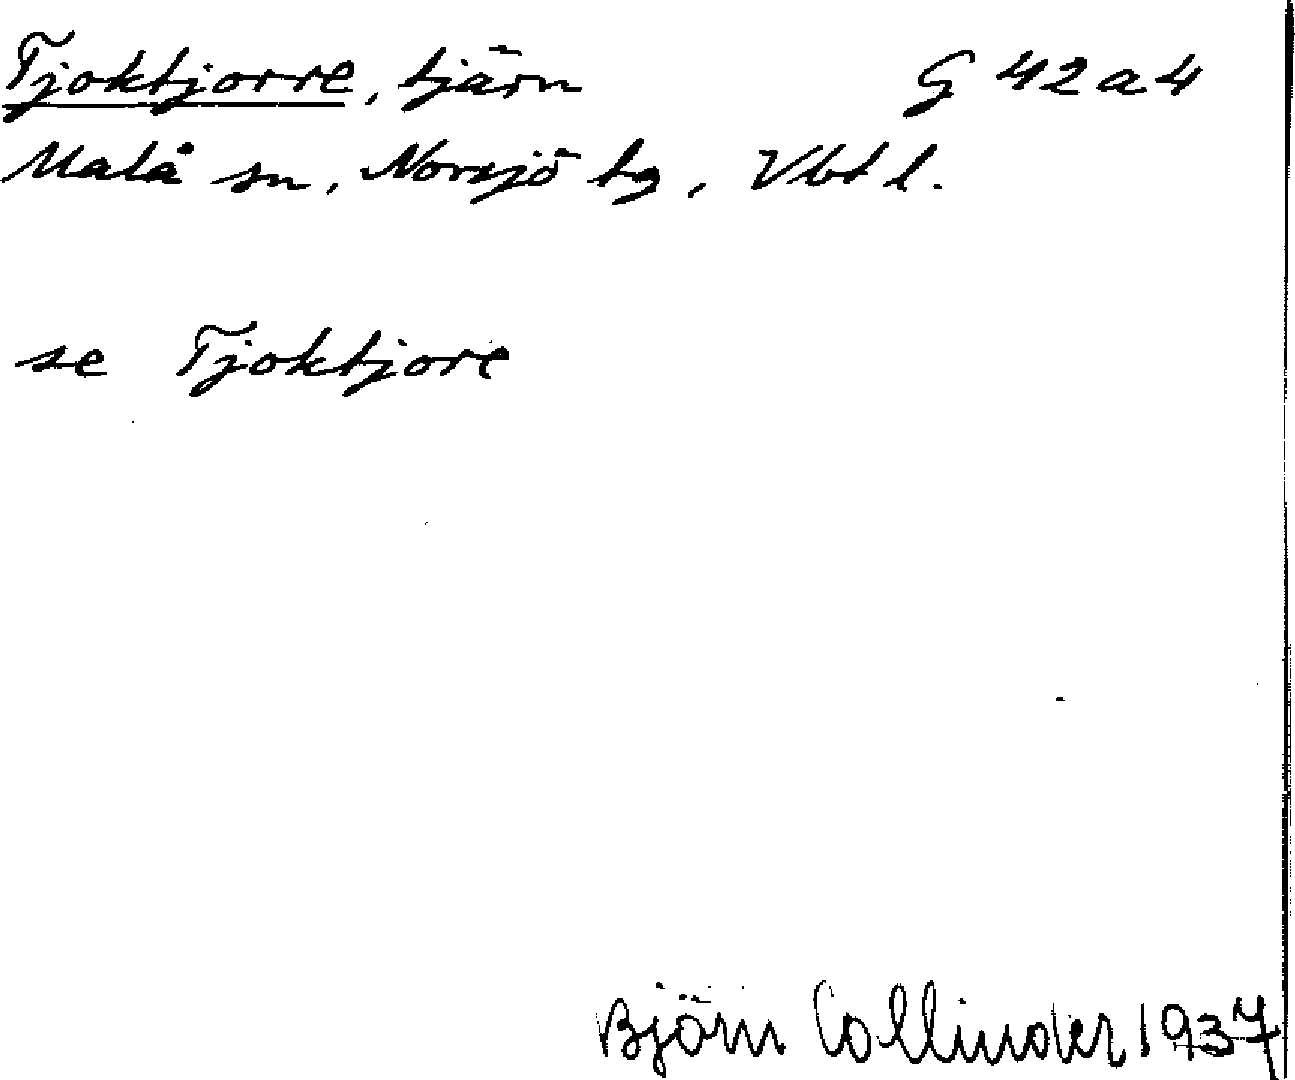 Tjoktjorre, tjärn G 42 a 4
Malå sn, Norsjö tg, Vbt l.
se Tjoktjore
Björn Collinder 1937